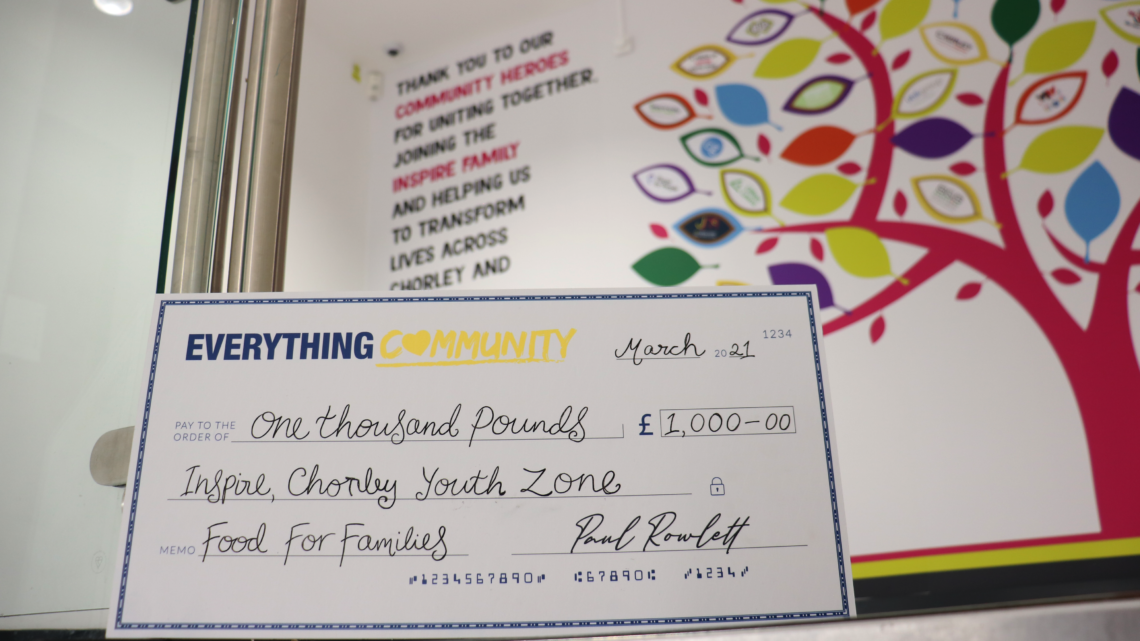 THANK YOU TO OUR
COMMUNITY HEROES
FOR UNITING TOGETHER,
JOINING THE
INSPIRE FAMILY
AND HELPING US
TO TRANSFORM
LIVES ACROSS
CHORLEY AND
EVERYTHING COMMUNITY
March 2021
1234
PAY TO THE ORDER OF One thousand Pounds £ 1,000-00
Inspire, Chorley Youth Zone
MEMO Food For Families Paul Rowlett
1234567890 67890 1234